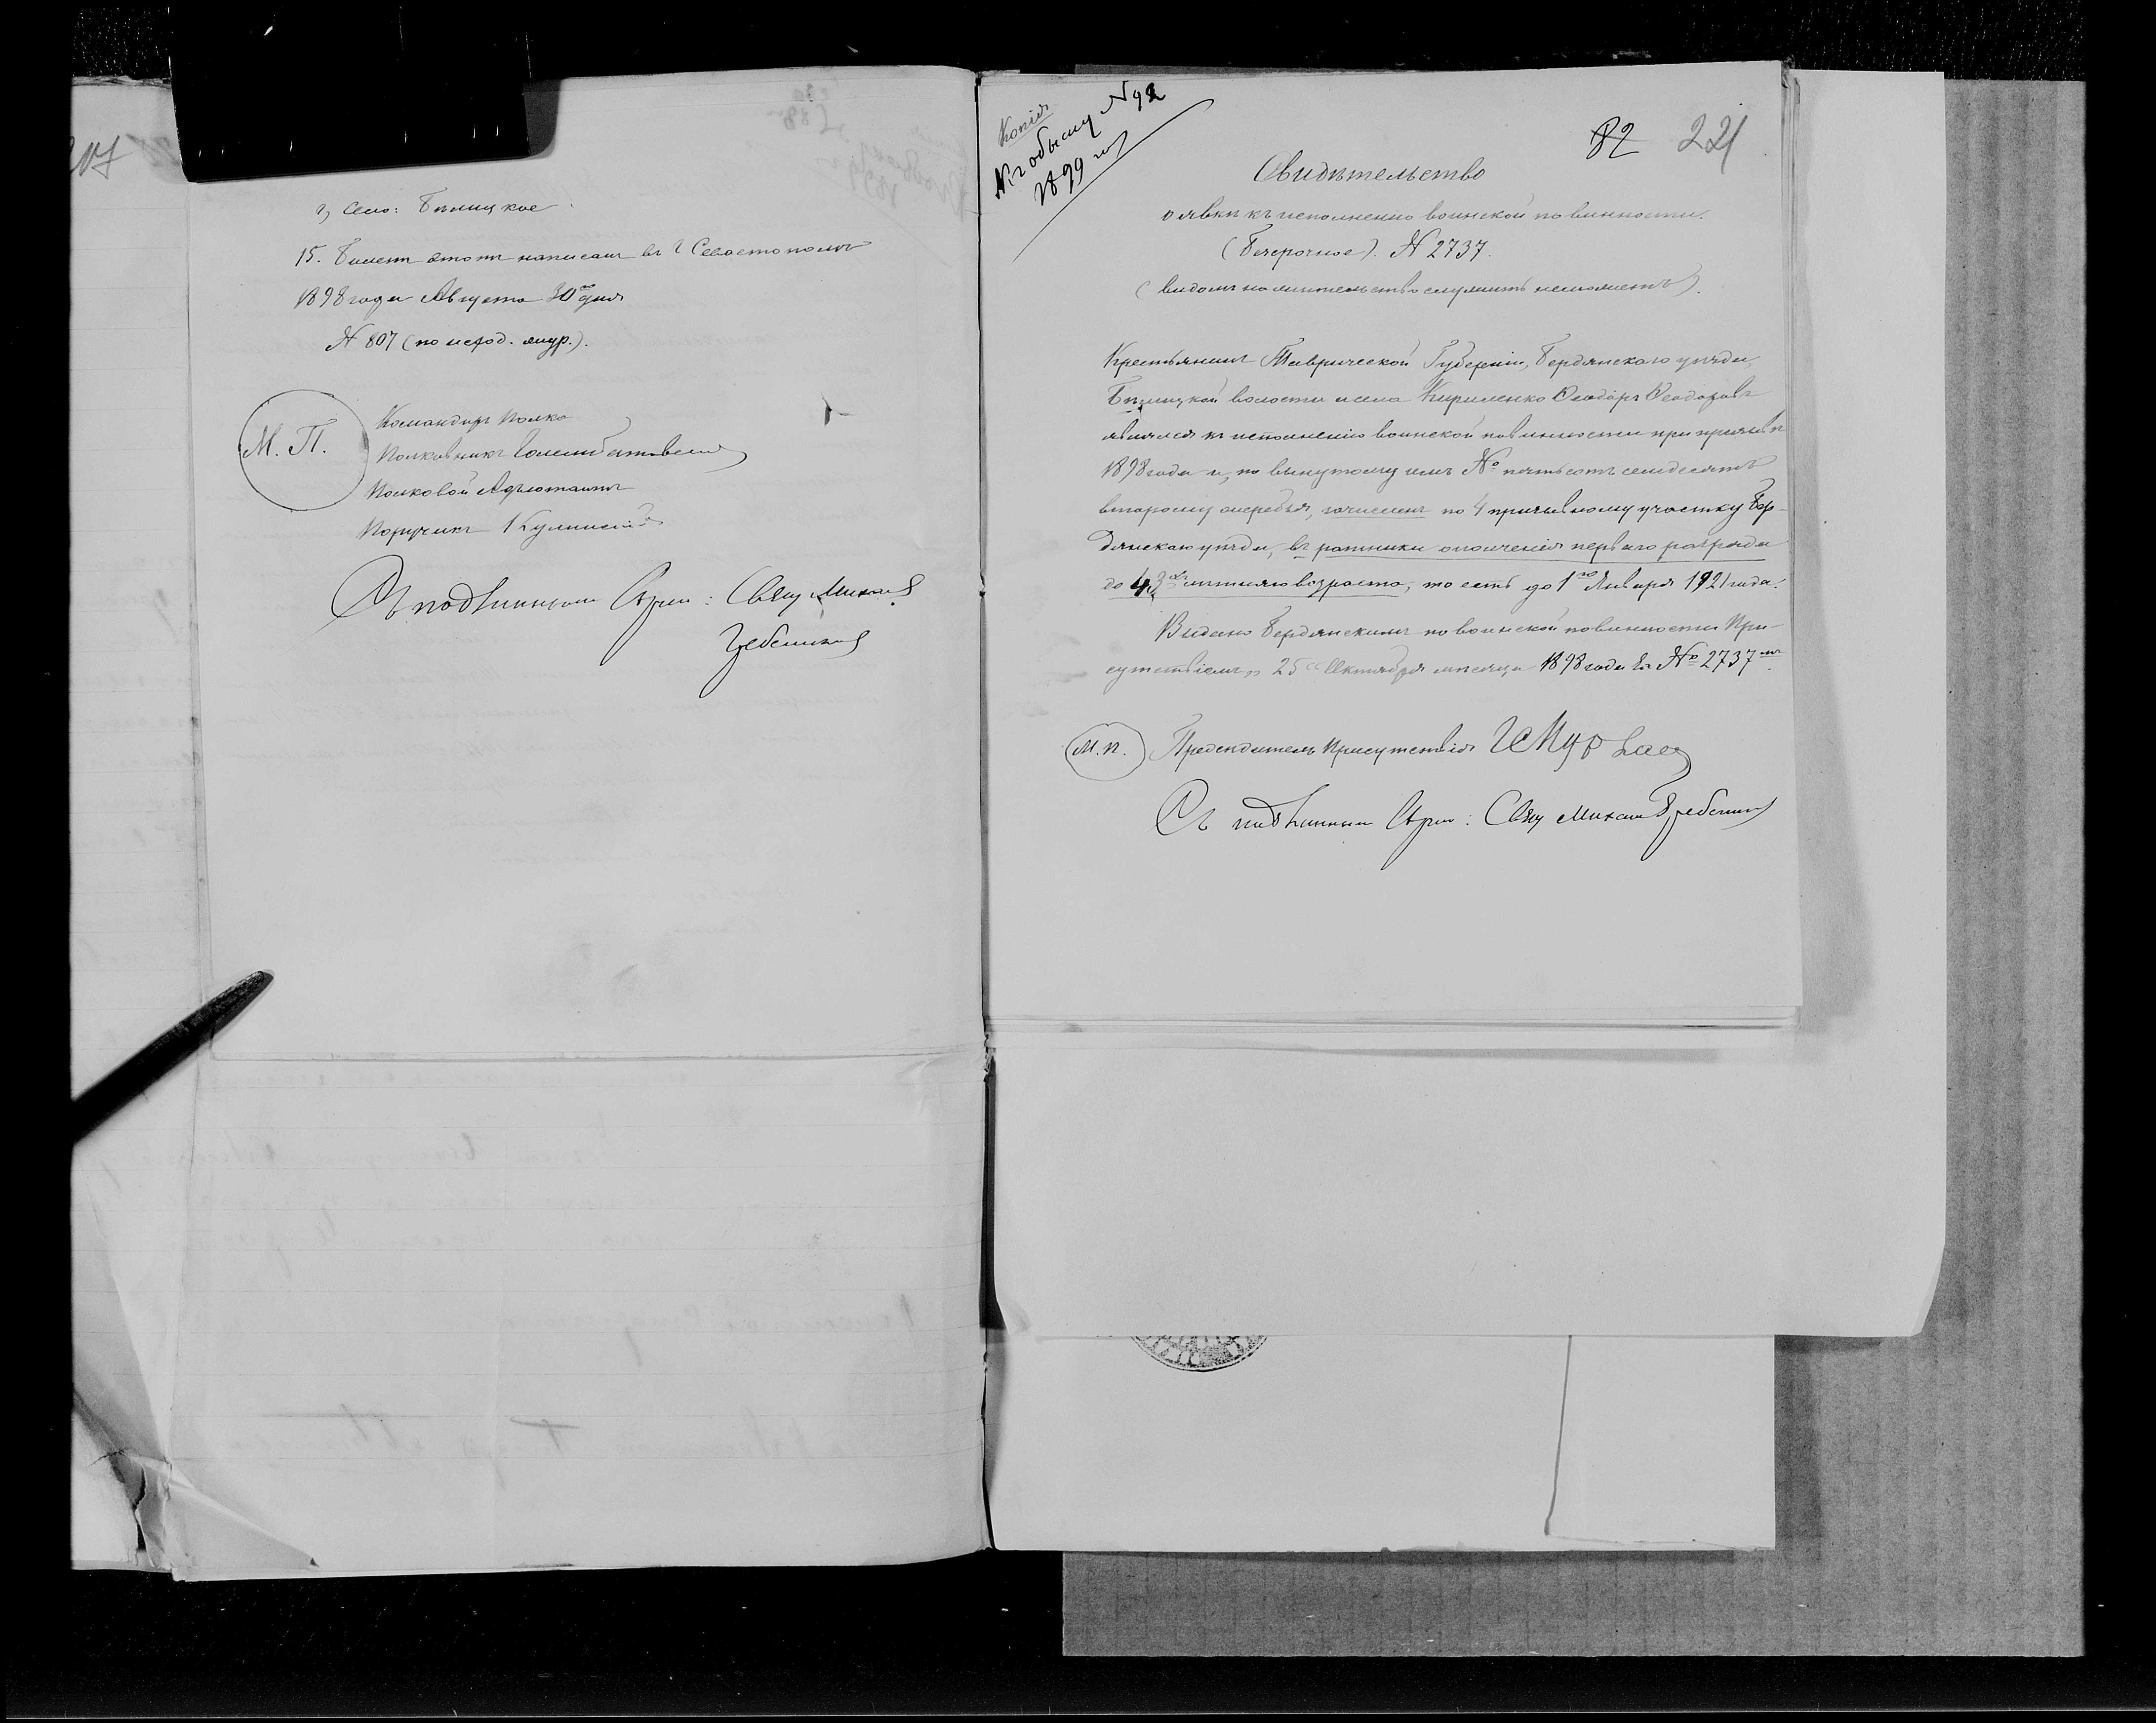 217
г, село: Бѣлицкое
15. Билетъ этотъ написанъ въ г Севастополѣ
1898 года Августа 30го дня
№ 807 (по исход. жур.).
М. П.
Командиръ полка
Полковникъ
Полковой Адъютантъ
Поручикъ
Съ подлиннымъ вѣрно: Свящ Михаилъ
Гребенниковъ
Копія
Къ обыску № 42
1899 г.
82 221
Свидѣтельство
о явкѣ къ исполненію воинской повинности.
(Безсрочное). № 2737.
(видомъ на жительство служить не можетъ).
Крестьянинъ Таврической Губерніи, Бердянскаго уѣзда,
Бѣлицкой волости и села Кириленко Ѳеодоръ Ѳеодоровъ
являлся къ исполненію воинской повинности при призывѣ
1898 года и, по вынутому имъ № пятьсотъ семьдесятъ
второму жеребью, зачисленъ по 4 призывному участку Бер-
дянскаго уѣзда, въ ратники ополченія перваго разряда
до 43хъ лѣтняго возраста, то есть до 1го Января 1921 года.
Выдано Бердянскимъ по воинской повинности При-
сутствіемъ „25“ Октября мѣсяца 1898 года за № 2737мъ.
М. П.
Предсѣдатель Присутствія
Съ подлиннымъ вѣрно: Свящ Михаилъ Гребенниковъ